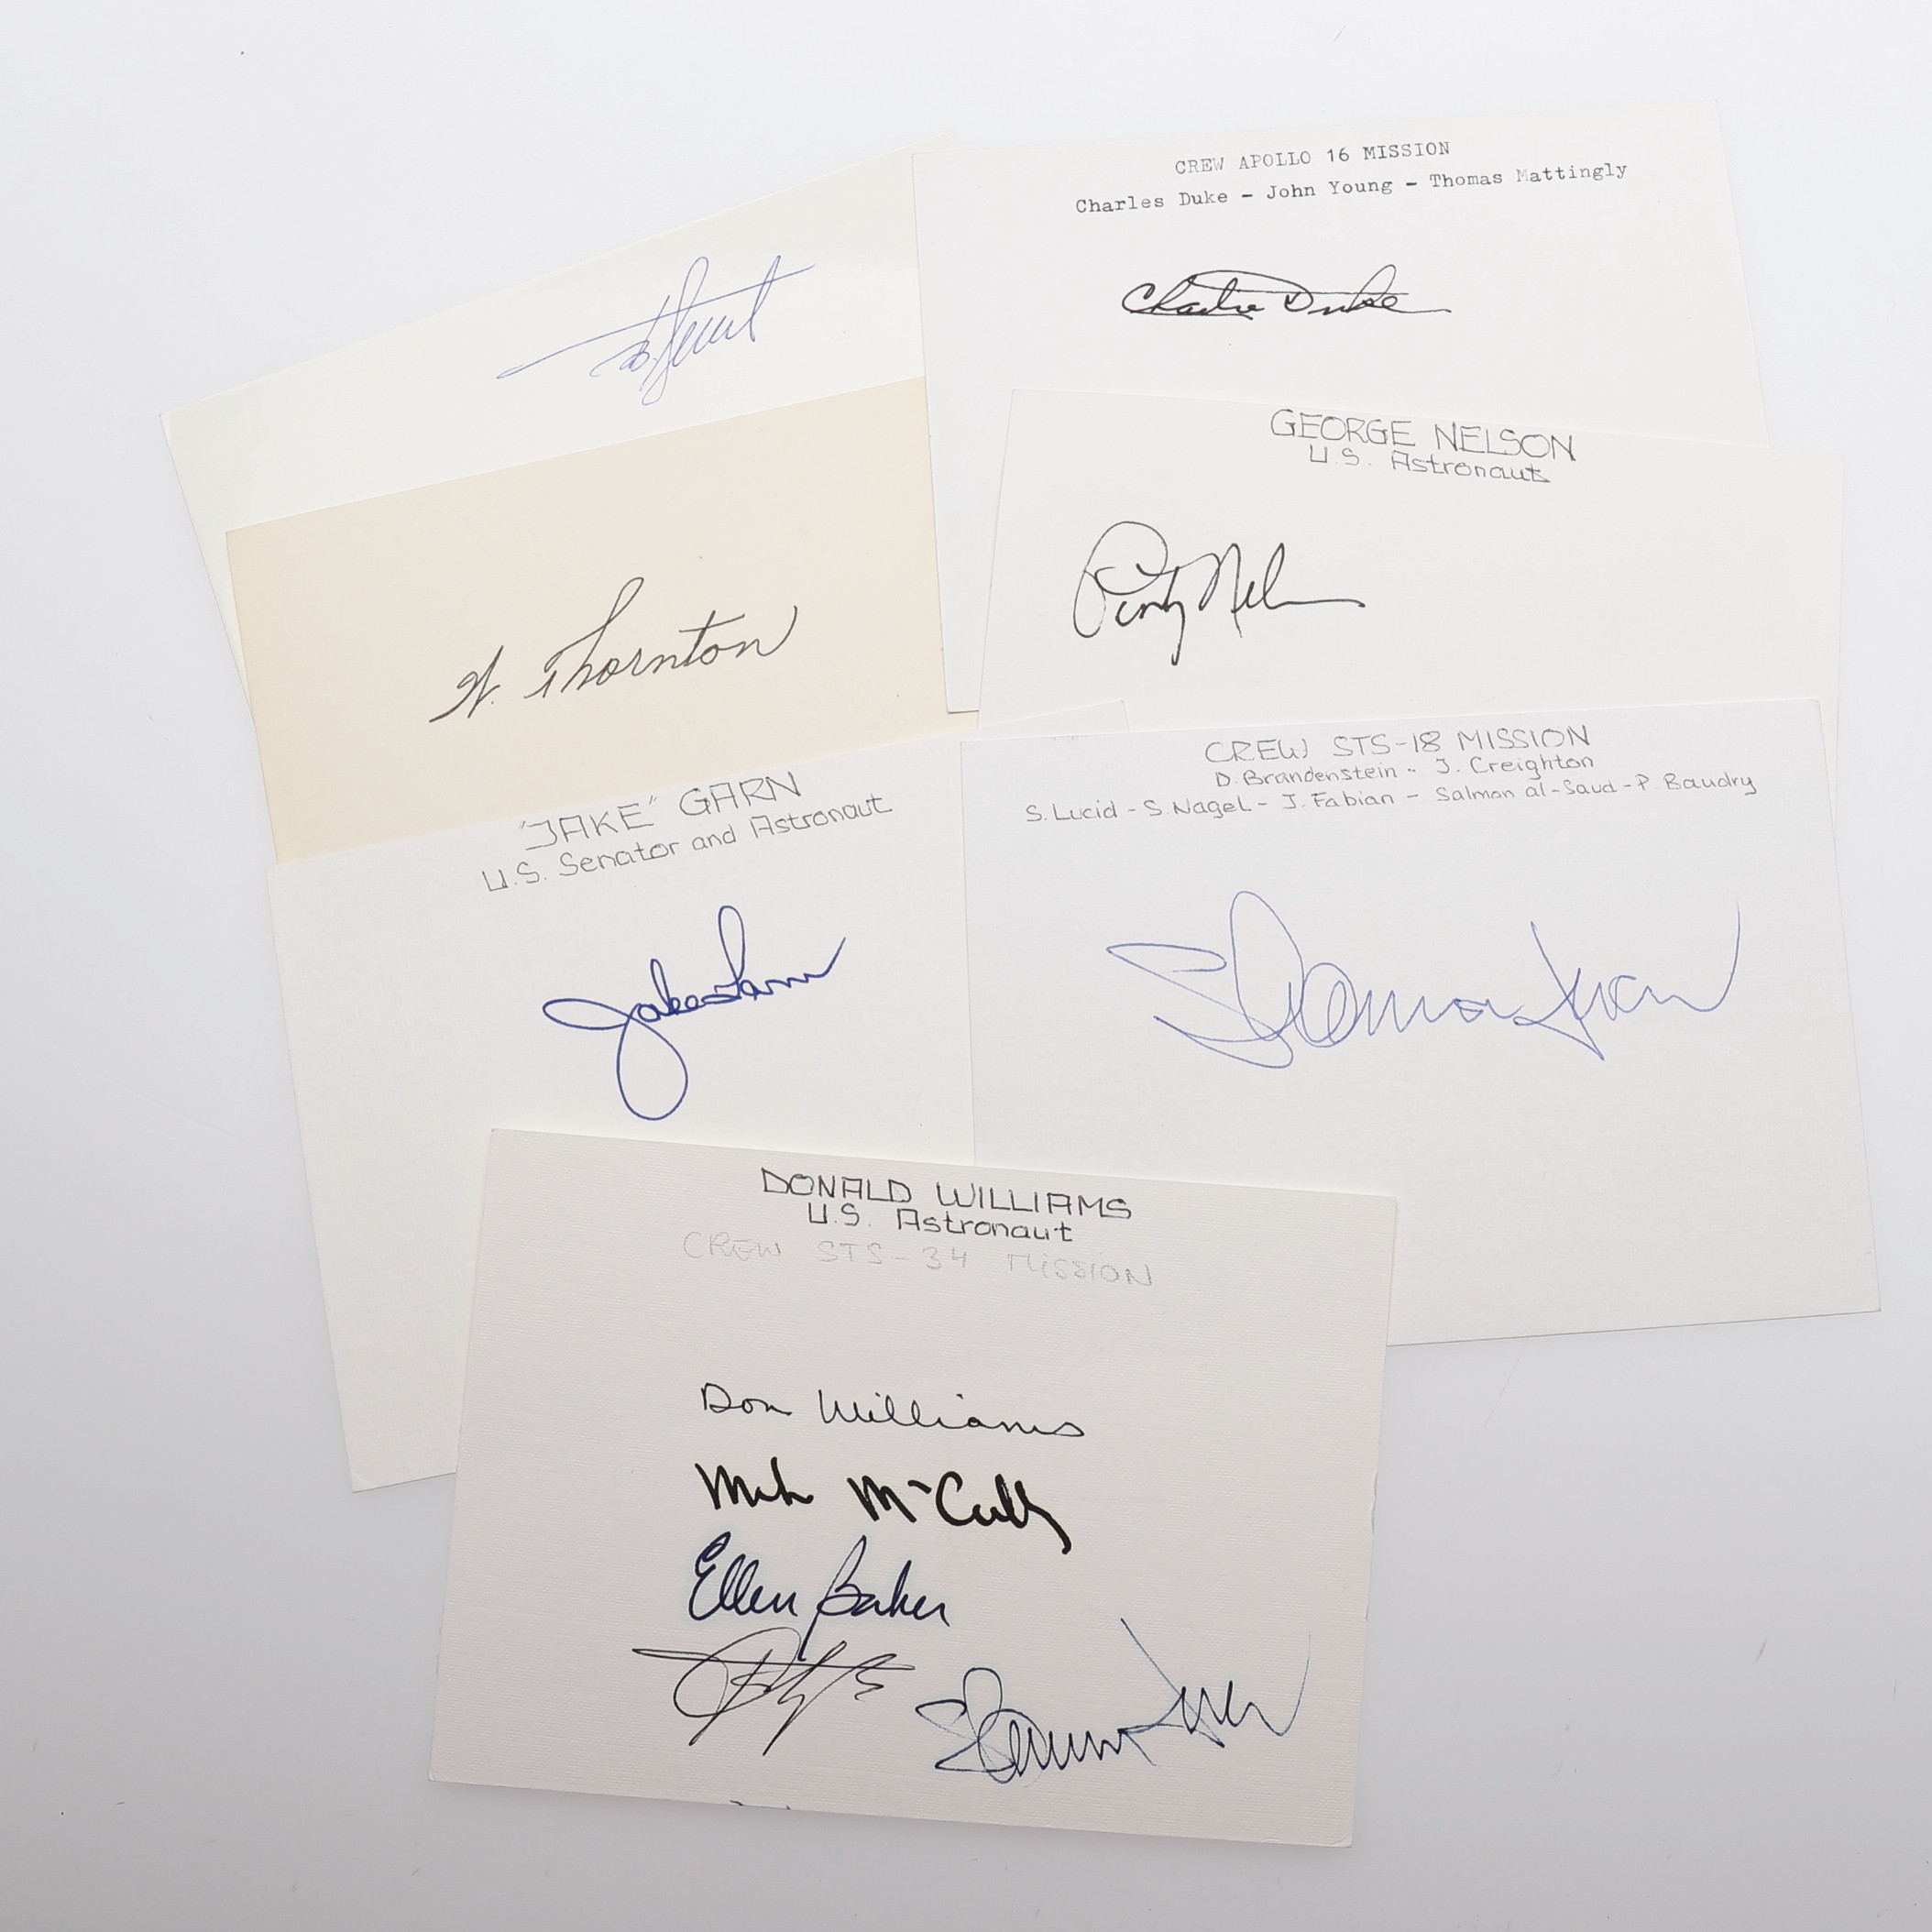 CREW APOLLO 16 MISSION
Charles Duke - John Young - Thomas Mattingly
Charlie Duke
GEORGE NELSON
U.S. Astronaut
Pinky Nelson
W. Thornton
"JAKE" GARN
U.S. Senator and Astronaut
Jake Garn
CREW STS-18 MISSION
D. Brandenstein - J. Creighton
S. Lucid - S. Nagel - J. Fabian - Salman al-Saud - P. Baudry
Shannon Lucid
DONALD WILLIAMS
U.S. Astronaut
CREW STS-34 MISSION
Don Williams
Mike McCulley
Ellen Baker
Shannon Lucid